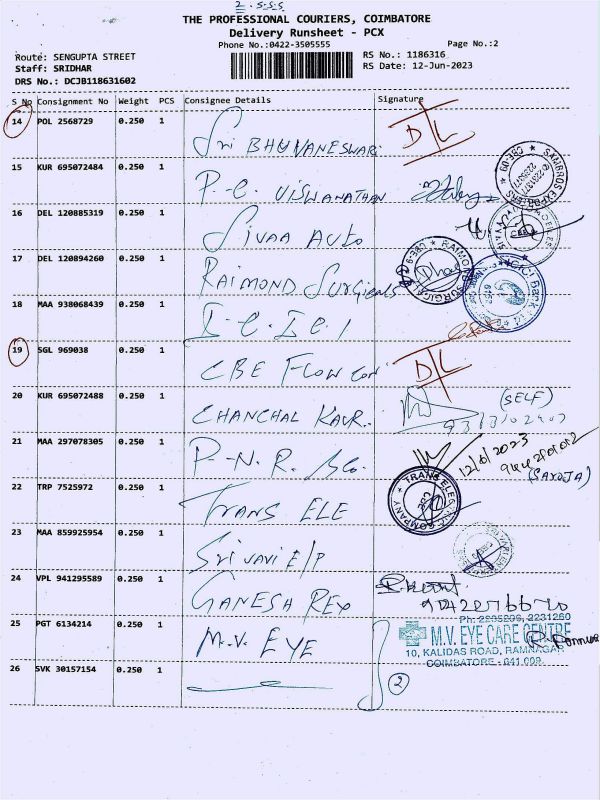 2.5.5.5
THE PROFESSIONAL COURIERS, COIMBATORE
Delivery Runsheet - PCX
Phone No.:0422-3505555
Page No.:2
Route: SENGUPTA STREET
RS No.: 1186316
Staff: SRIDHAR
RS Date: 12-Jun-2023
DRS No.: DCJB118631602
S No Consignment No Weight PCS Consignee Details Signature
14 POL 2568729 0.250 1 Sri BHUVANESWARI D/L
15 KUR 695072484 0.250 1 P.C. VISWANATHAN
16 DEL 120885319 0.250 1 SIVAA AUTO
17 DEL 120894260 0.250 1 RAIMOND SURGICALS
18 MAA 938068439 0.250 1 I.C.I.C.I
19 SGL 969038 0.250 1 CBE FLOW CON D/L
20 KUR 695072488 0.250 1 CHANCHAL KAUR. (SELF)
21 MAA 297078305 0.250 1 P.N.R. &Co. 12/6/2023
(SAROJA)
22 TRP 7525972 0.250 1 TRANS ELE
23 MAA 859925954 0.250 1 Sri JAVI E/P
24 VPL 941295589 0.250 1 GANESH REX
25 PGT 6134214 0.250 1 M.V. EYE
Ph: 2235236, 2231260
M.V. EYE CARE CENTRE
10, KALIDAS ROAD, RAMNAGAR
COIMBATORE - 641 009.
26 SVK 30157154 0.250 1 2